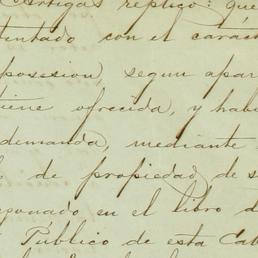 Artigas replicó: que
tentado con el carác
posesion, segun apar
tiene ofrecida, y habi
demanda, mediante
de propiedad de s
en el libro d
Publico de esta Cab